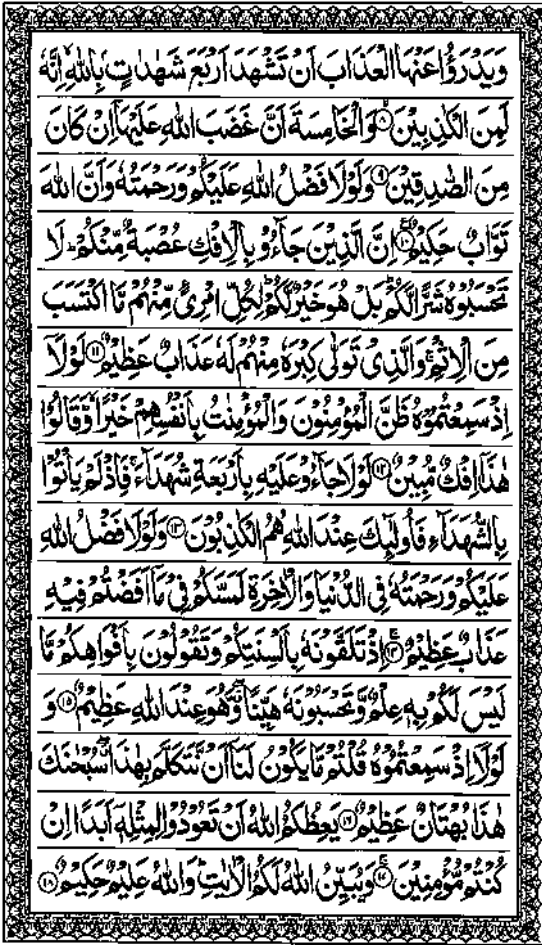 وَيَدْرَؤُا عَنْهَا الْعَذَابَ اَنْ تَشْهَدَ اَرْبَعَ شَهٰدٰتٍۭ بِاللّٰهِ اِنَّهٗ
لَمِنَ الْكٰذِبِيْنَ ۙ﴿۸﴾ وَالْخَامِسَةَ اَنَّ غَضَبَ اللّٰهِ عَلَيْهَاۤ اِنْ كَانَ
مِنَ الصّٰدِقِيْنَ ﴿۹﴾ وَلَوْلَا فَضْلُ اللّٰهِ عَلَيْكُمْ وَرَحْمَتُهٗ وَاَنَّ اللّٰهَ
تَوَّابٌ حَكِيْمٌ ﴿۱۰﴾ اِنَّ الَّذِيْنَ جَآءُوْ بِالْاِفْكِ عُصْبَةٌ مِّنْكُمْ ؕ لَا
تَحْسَبُوْهُ شَرًّا لَّكُمْ ؕ بَلْ هُوَ خَيْرٌ لَّكُمْ ؕ لِكُلِّ امْرِئٍ مِّنْهُمْ مَّا اكْتَسَبَ
مِنَ الْاِثْمِ ۚ وَالَّذِيْ تَوَلّٰى كِبْرَهٗ مِنْهُمْ لَهٗ عَذَابٌ عَظِيْمٌ ﴿۱۱﴾ لَوْلَاۤ
اِذْ سَمِعْتُمُوْهُ ظَنَّ الْمُؤْمِنُوْنَ وَالْمُؤْمِنٰتُ بِاَنْفُسِهِمْ خَيْرًا ۙ وَّقَالُوْا
هٰذَاۤ اِفْكٌ مُّبِيْنٌ ﴿۱۲﴾ لَوْلَا جَآءُوْ عَلَيْهِ بِاَرْبَعَةِ شُهَدَآءَ ۚ فَاِذْ لَمْ يَاْتُوْا
بِالشُّهَدَآءِ فَاُولٰٓئِكَ عِنْدَ اللّٰهِ هُمُ الْكٰذِبُوْنَ ﴿۱۳﴾ وَلَوْلَا فَضْلُ اللّٰهِ
عَلَيْكُمْ وَرَحْمَتُهٗ فِي الدُّنْيَا وَالْاٰخِرَةِ لَمَسَّكُمْ فِيْ مَاۤ اَفَضْتُمْ فِيْهِ
عَذَابٌ عَظِيْمٌ ﴿۱۴﴾ اِذْ تَلَقَّوْنَهٗ بِاَلْسِنَتِكُمْ وَتَقُوْلُوْنَ بِاَفْوَاهِكُمْ مَّا
لَيْسَ لَكُمْ بِهٖ عِلْمٌ وَّتَحْسَبُوْنَهٗ هَيِّنًا ۖ وَّهُوَ عِنْدَ اللّٰهِ عَظِيْمٌ ﴿۱۵﴾ وَ
لَوْلَاۤ اِذْ سَمِعْتُمُوْهُ قُلْتُمْ مَّا يَكُوْنُ لَنَاۤ اَنْ نَّتَكَلَّمَ بِهٰذَا ۖ سُبْحٰنَكَ
هٰذَا بُهْتَانٌ عَظِيْمٌ ﴿۱۶﴾ يَعِظُكُمُ اللّٰهُ اَنْ تَعُوْدُوْا لِمِثْلِهٖۤ اَبَدًا اِنْ
كُنْتُمْ مُّؤْمِنِيْنَ ﴿۱۷﴾ وَيُبَيِّنُ اللّٰهُ لَكُمُ الْاٰيٰتِ ؕ وَاللّٰهُ عَلِيْمٌ حَكِيْمٌ ﴿۱۸﴾